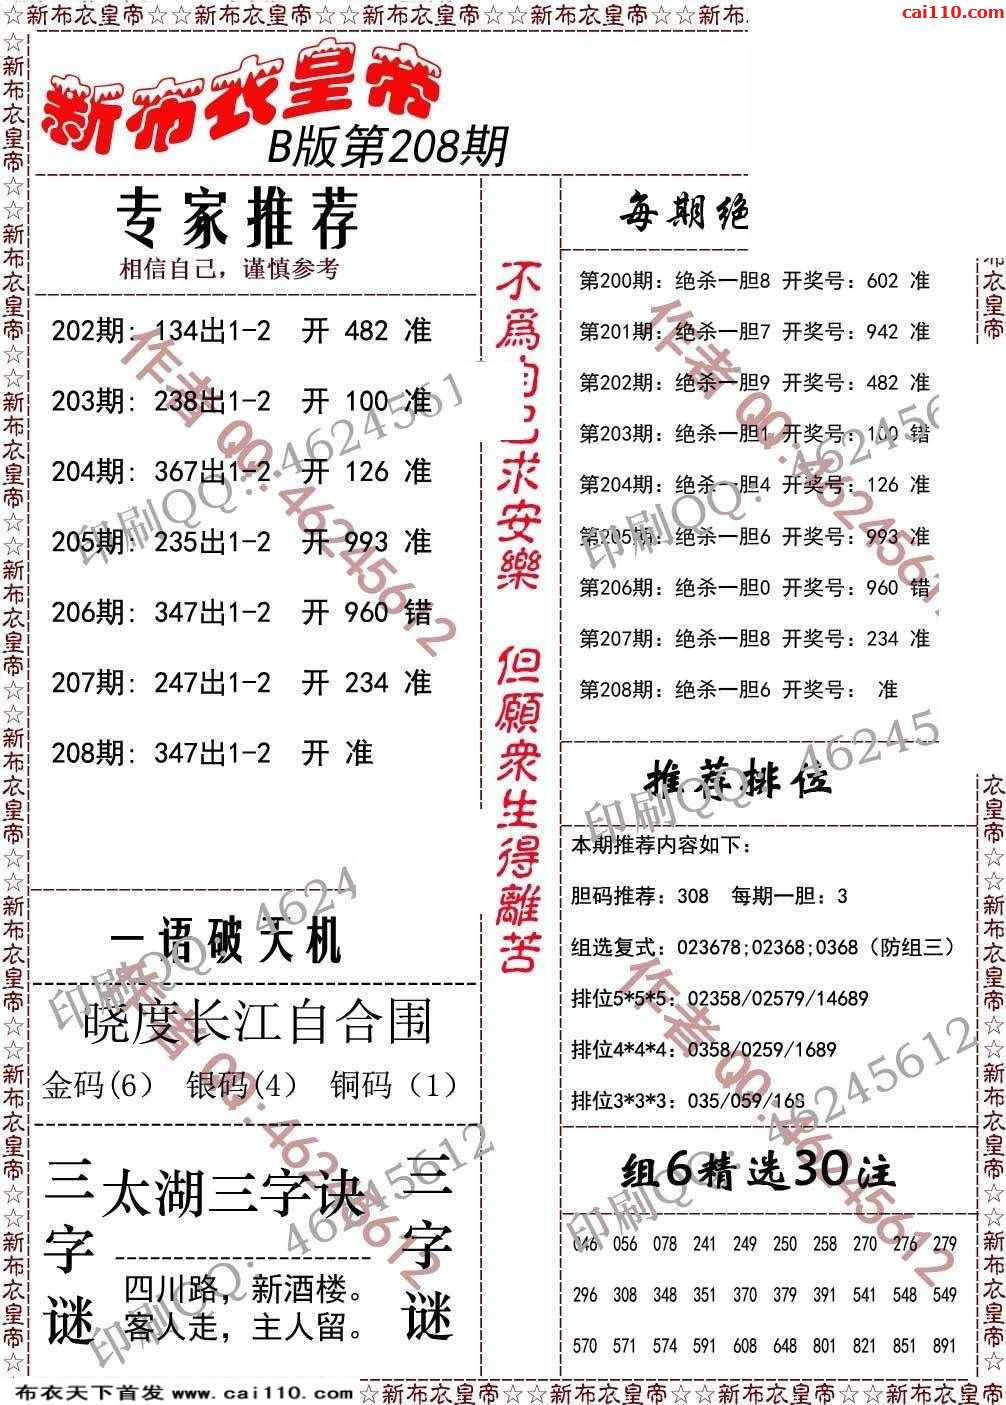 ☆新布衣皇帝☆☆新布衣皇帝☆☆新布衣皇帝☆☆新布衣皇帝☆☆新布
cai110.com
新布衣皇帝
B版第208期
专家推荐
相信自己，谨慎参考
202期: 134出1-2 开 482 准
203期: 238出1-2 开 100 准
204期: 367出1-2 开 126 准
205期: 235出1-2 开 993 准
206期: 347出1-2 开 960 错
207期: 247出1-2 开 234 准
208期: 347出1-2 开 准
一语破天机
晓度长江自合围
金码(6） 银码(4） 铜码（1）
三字谜
太湖三字诀
四川路，新酒楼。
客人走，主人留。
三字谜
不爲自己求安樂 但願衆生得離苦
每期绝
第200期: 绝杀一胆8 开奖号: 602 准
第201期: 绝杀一胆7 开奖号: 942 准
第202期: 绝杀一胆9 开奖号: 482 准
第203期: 绝杀一胆1 开奖号: 100 错
第204期: 绝杀一胆4 开奖号: 126 准
第205期: 绝杀一胆6 开奖号: 993 准
第206期: 绝杀一胆0 开奖号: 960 错
第207期: 绝杀一胆8 开奖号: 234 准
第208期: 绝杀一胆6 开奖号: 准
推荐排位
本期推荐内容如下:
胆码推荐: 308 每期一胆: 3
组选复式: 023678;02368;0368（防组三）
排位5*5*5: 02358/02579/14689
排位4*4*4: 0358/0259/1689
排位3*3*3: 035/059/168
组6精选30注
046 056 078 241 249 250 258 270 276 279
296 308 348 351 370 379 391 541 548 549
570 571 574 591 608 648 801 821 851 891
作者 QQ:46245612
印刷QQ: 4624561
作者 QQ:46245612
印刷QQ: 462456
印刷QQ: 4624
印刷QQ: 46245
作者 QQ:46245612
印刷QQ: 46245612
作者 QQ:46245612
印刷QQ: 46245612
布衣天下首发 www.cai110.com ☆新布衣皇帝☆☆新布衣皇帝☆☆新布衣皇帝☆☆新布衣皇帝☆